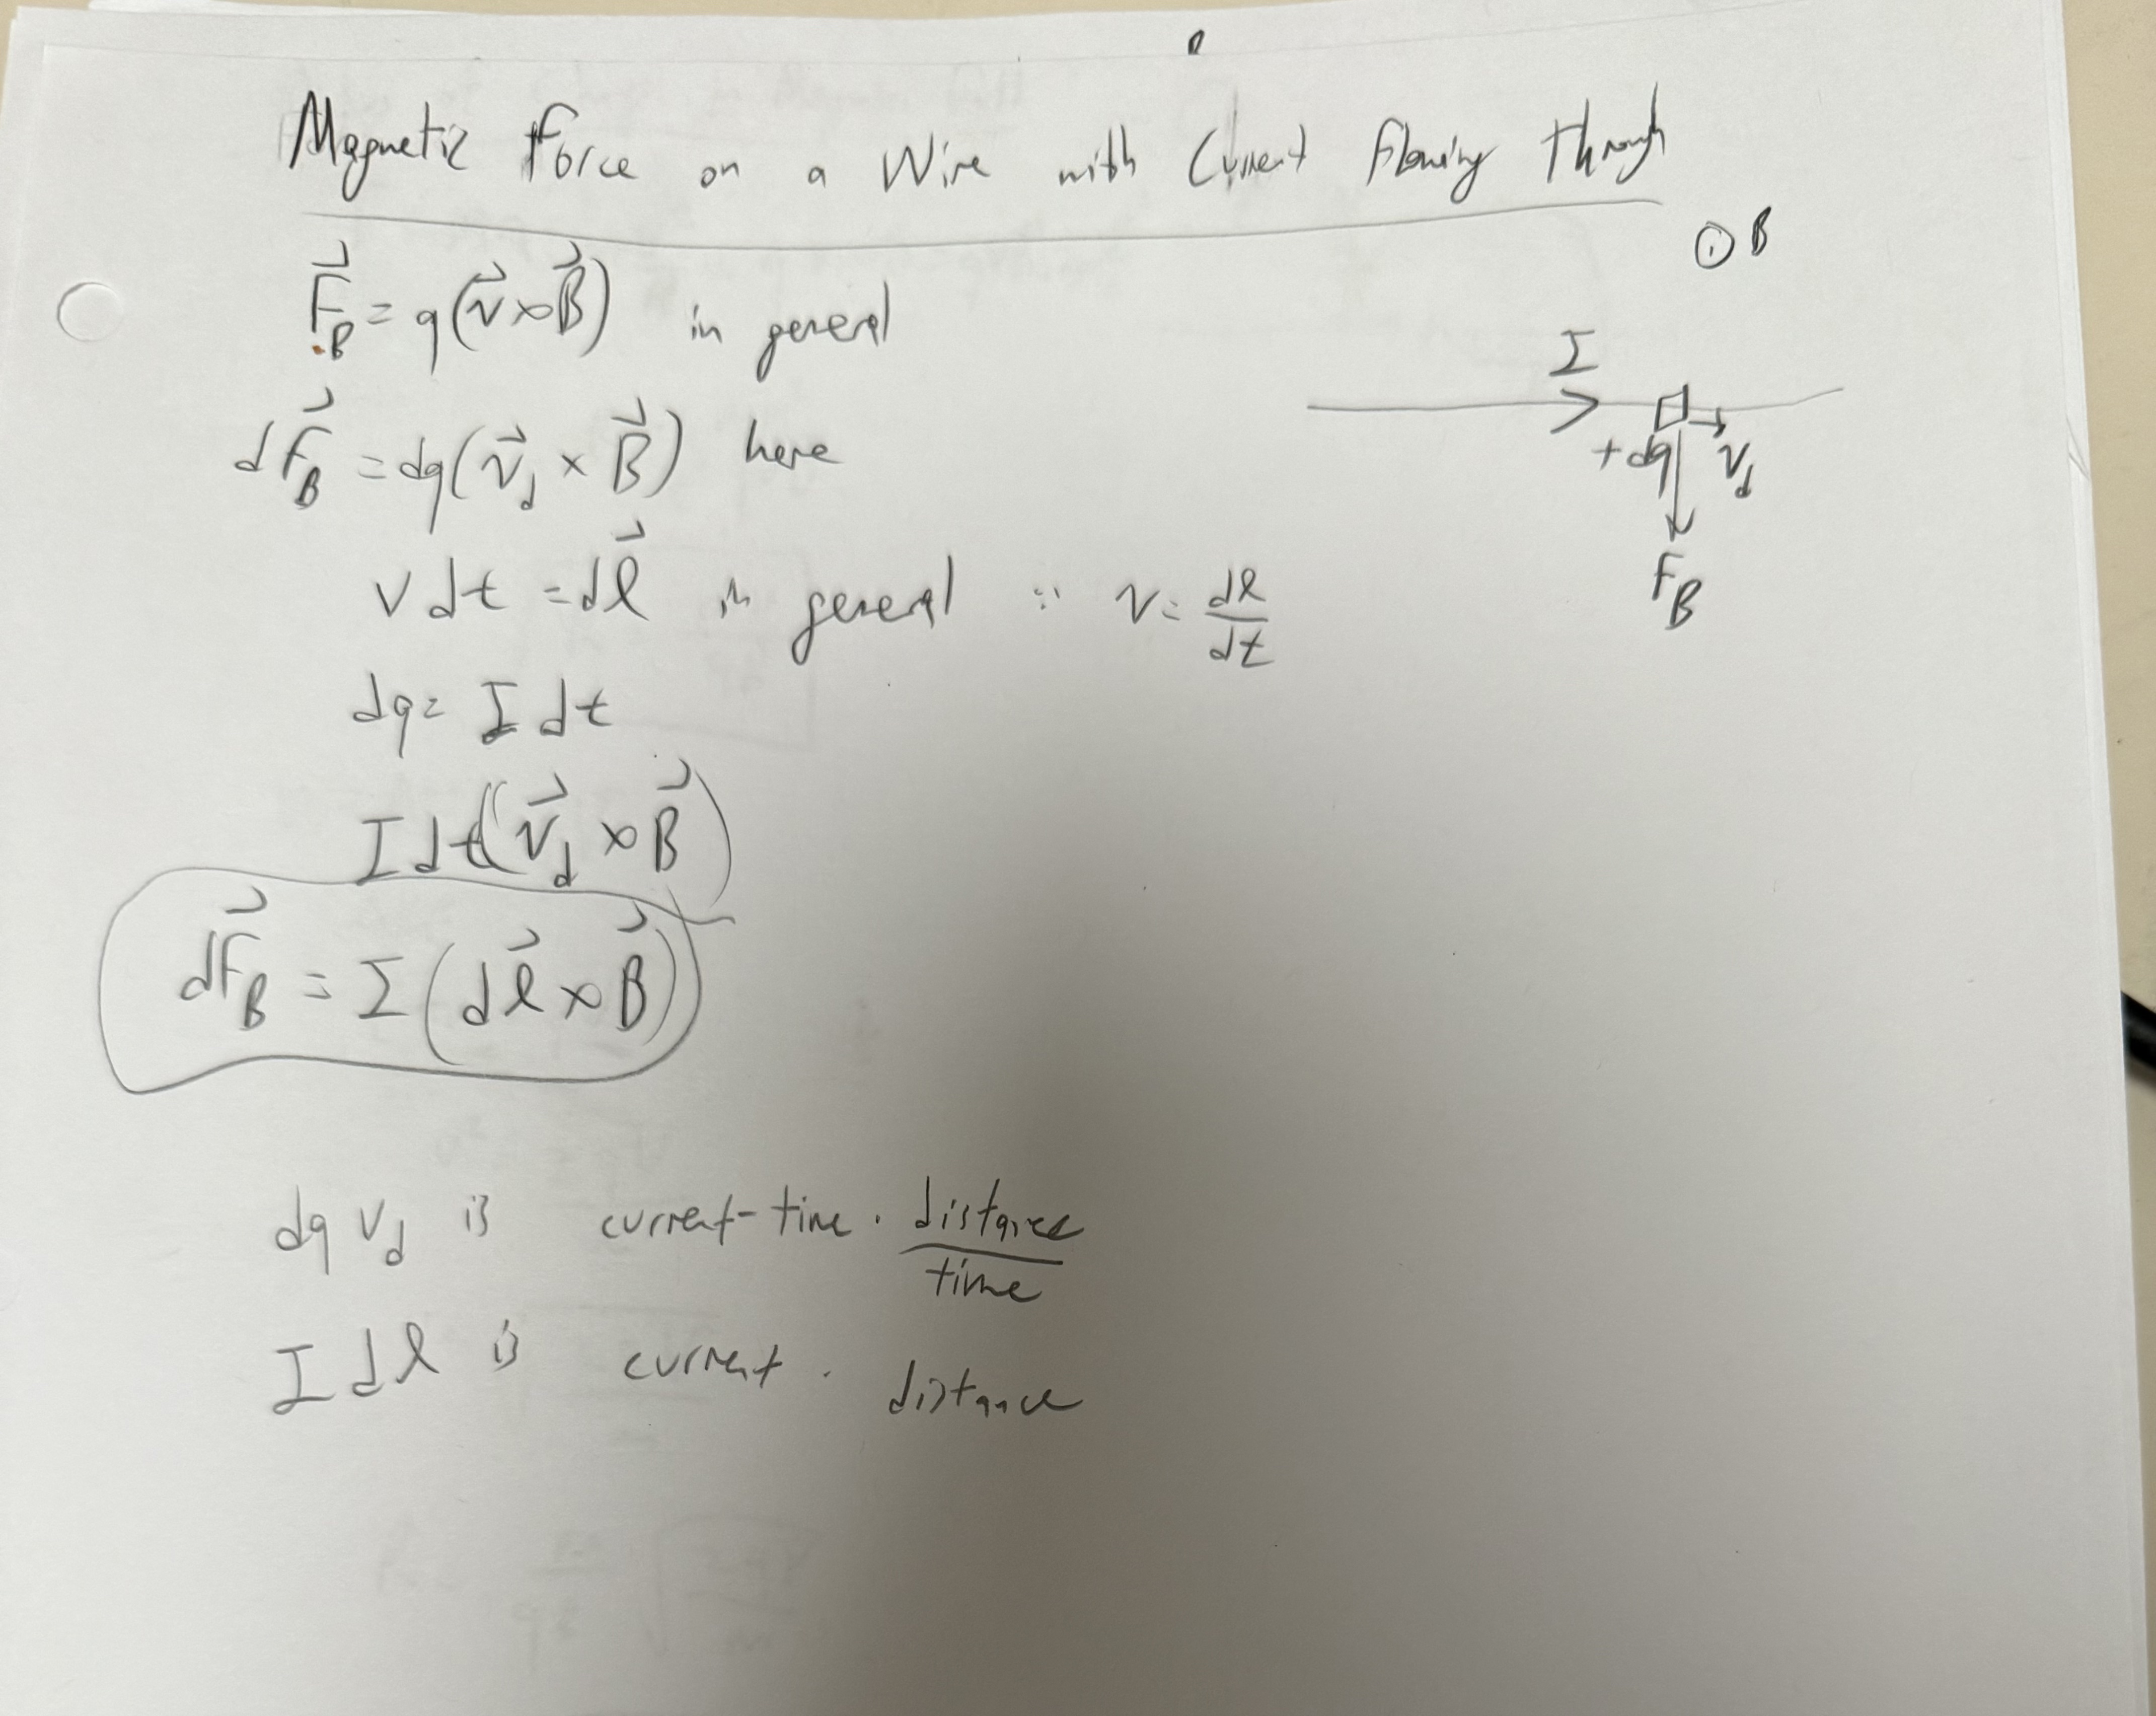 Magnetic Force on a Wire with Current Flowing Through
F⃗_B = q(v⃗ × B⃗) in general
⊙ B
dF⃗_B = dq(v⃗_d × B⃗) here
I
+dq v_d
F_B
v dt = dℓ⃗ in general ∵ v = dℓ/dt
dq = I dt
I dt(v⃗_d × B⃗)
dF⃗_B = I(dℓ⃗ × B⃗)
dq v_d is current-time · distance/time
I dℓ is current · distance